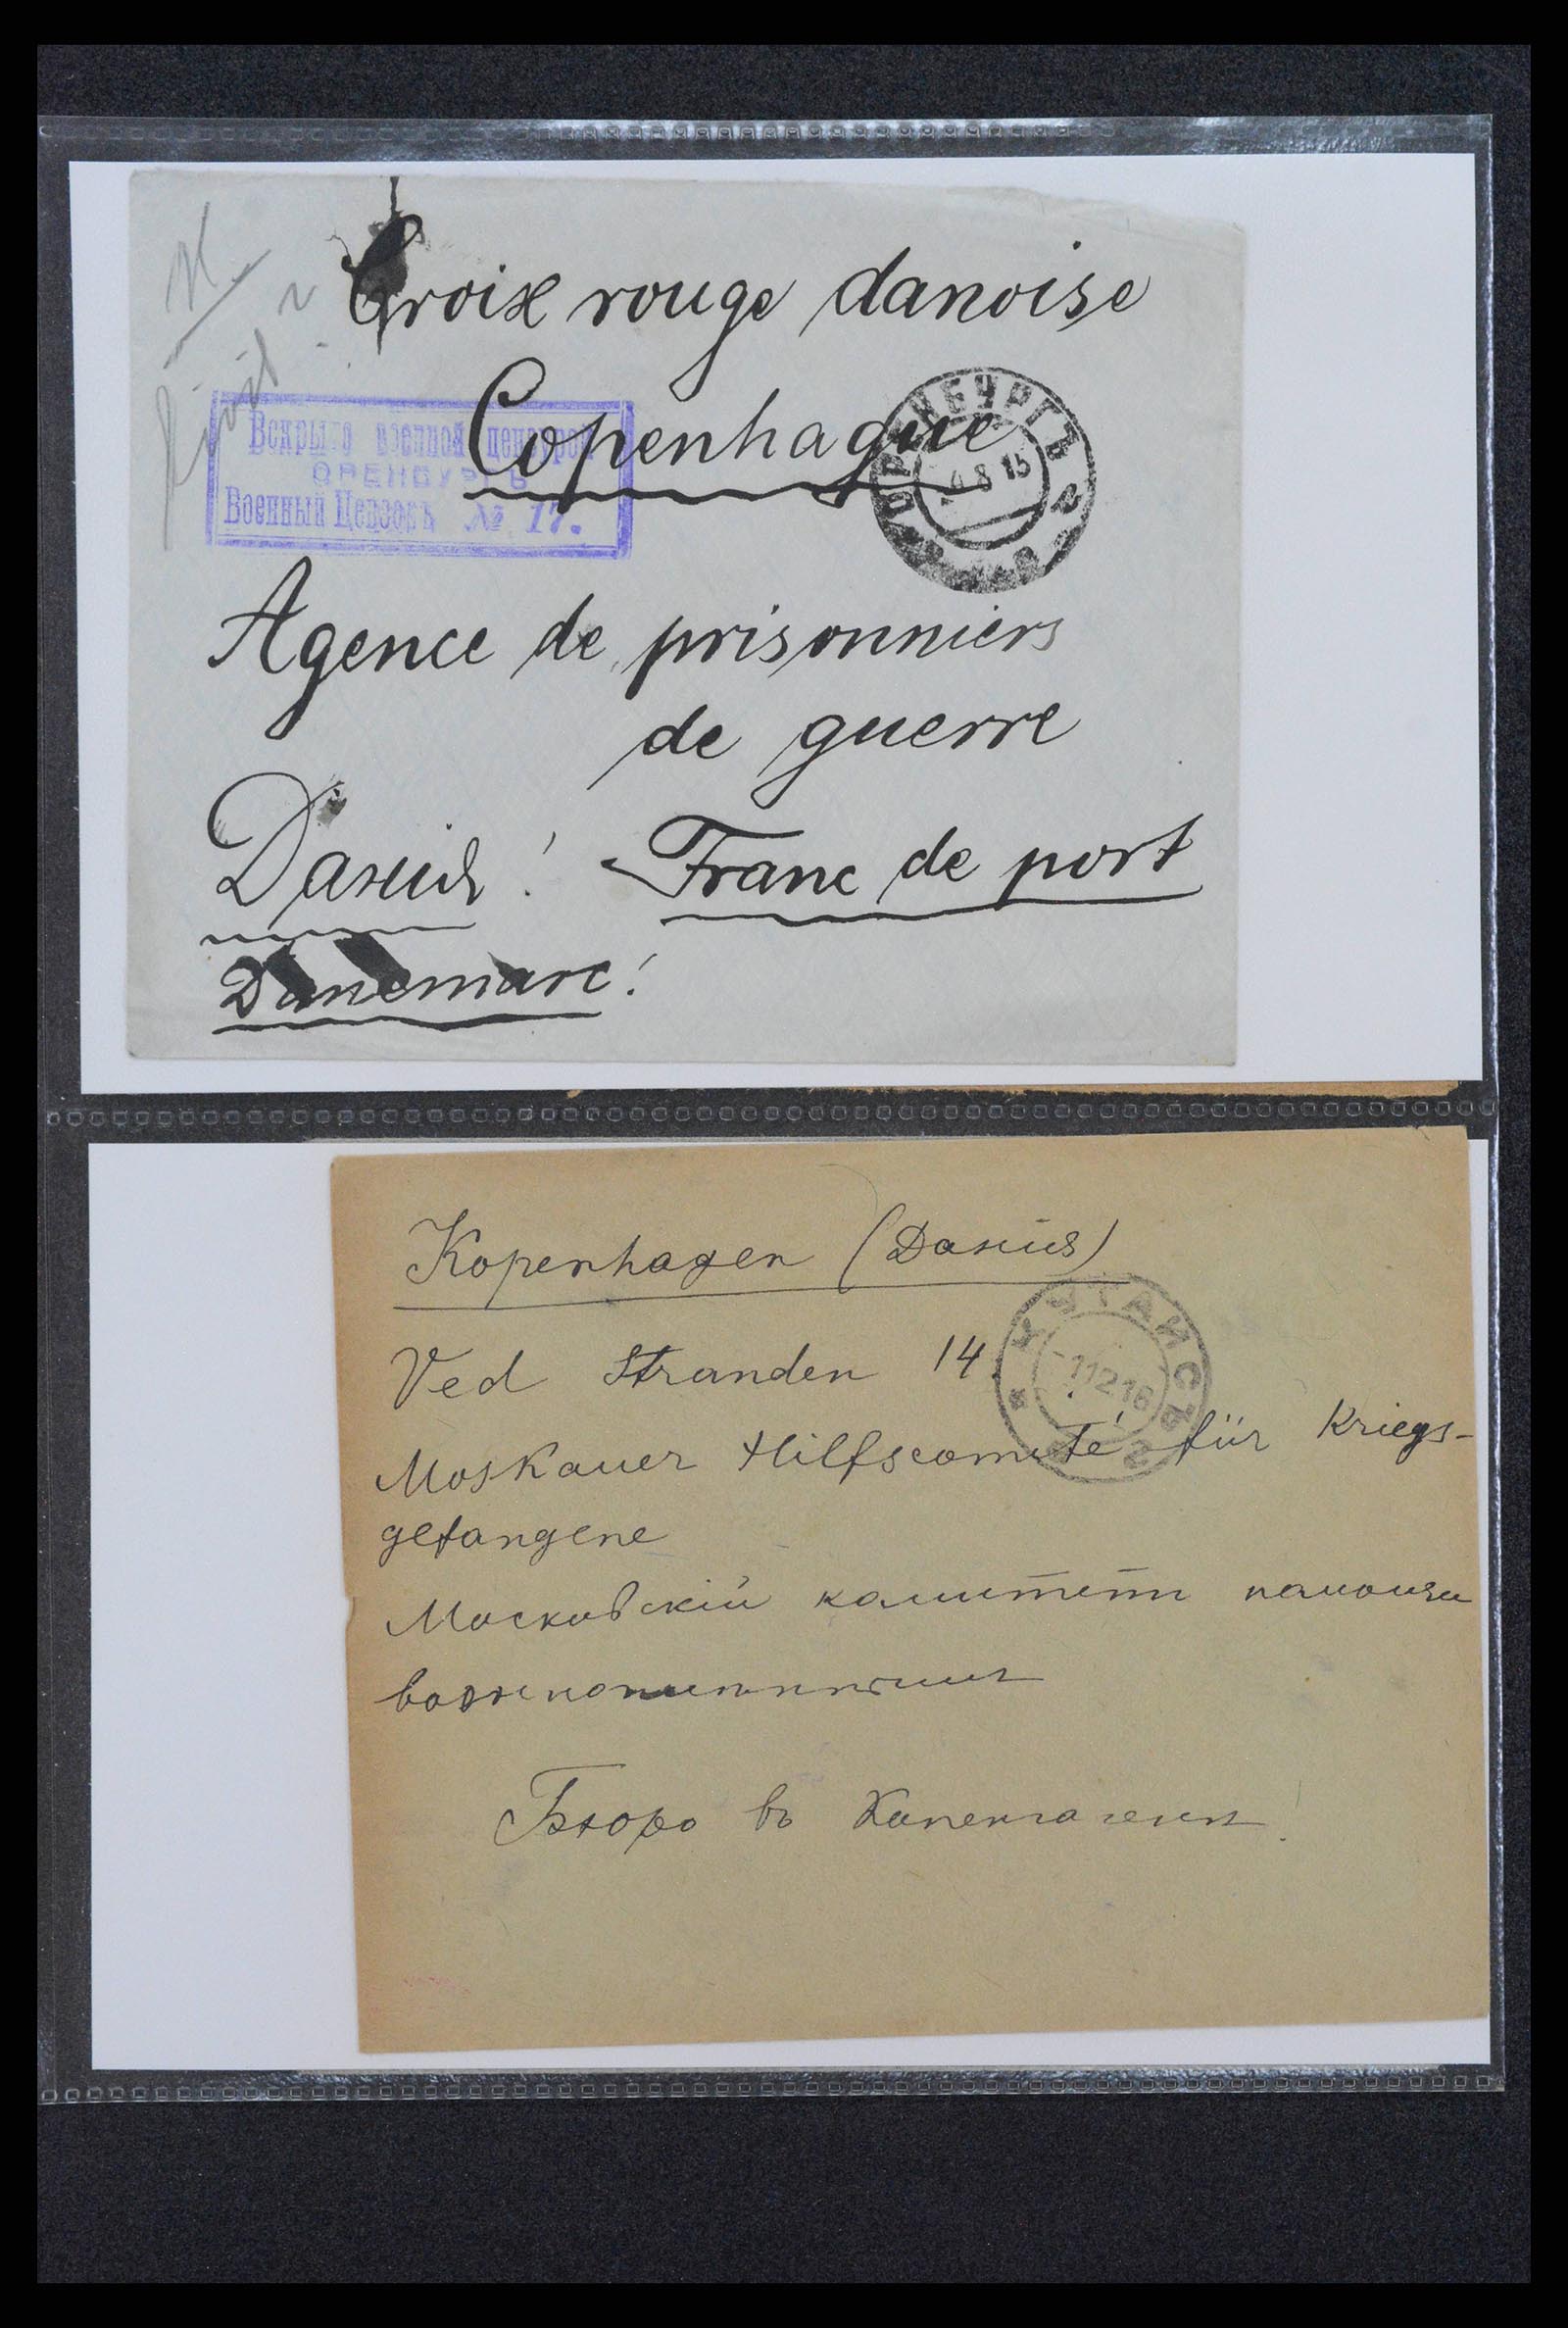 K.
Croix rouge danoise
Copenhague
Вскрыто военной цензурой
ОРЕНБУРГЪ
Военный Цензоръ № 17.
ОРЕНБУРГЪ
4 8 15
Agence de prisonniers
de guerre
Данія! Franc de port
Danemarc!
Kopenhagen (Данія)
Ved Stranden 14.
КУТАИСЪ
-11216
Moskauer Hilfscomité für Kriegs-
gefangene
Московскій комитетъ помощи
Бюро въ Копенгагенѣ!